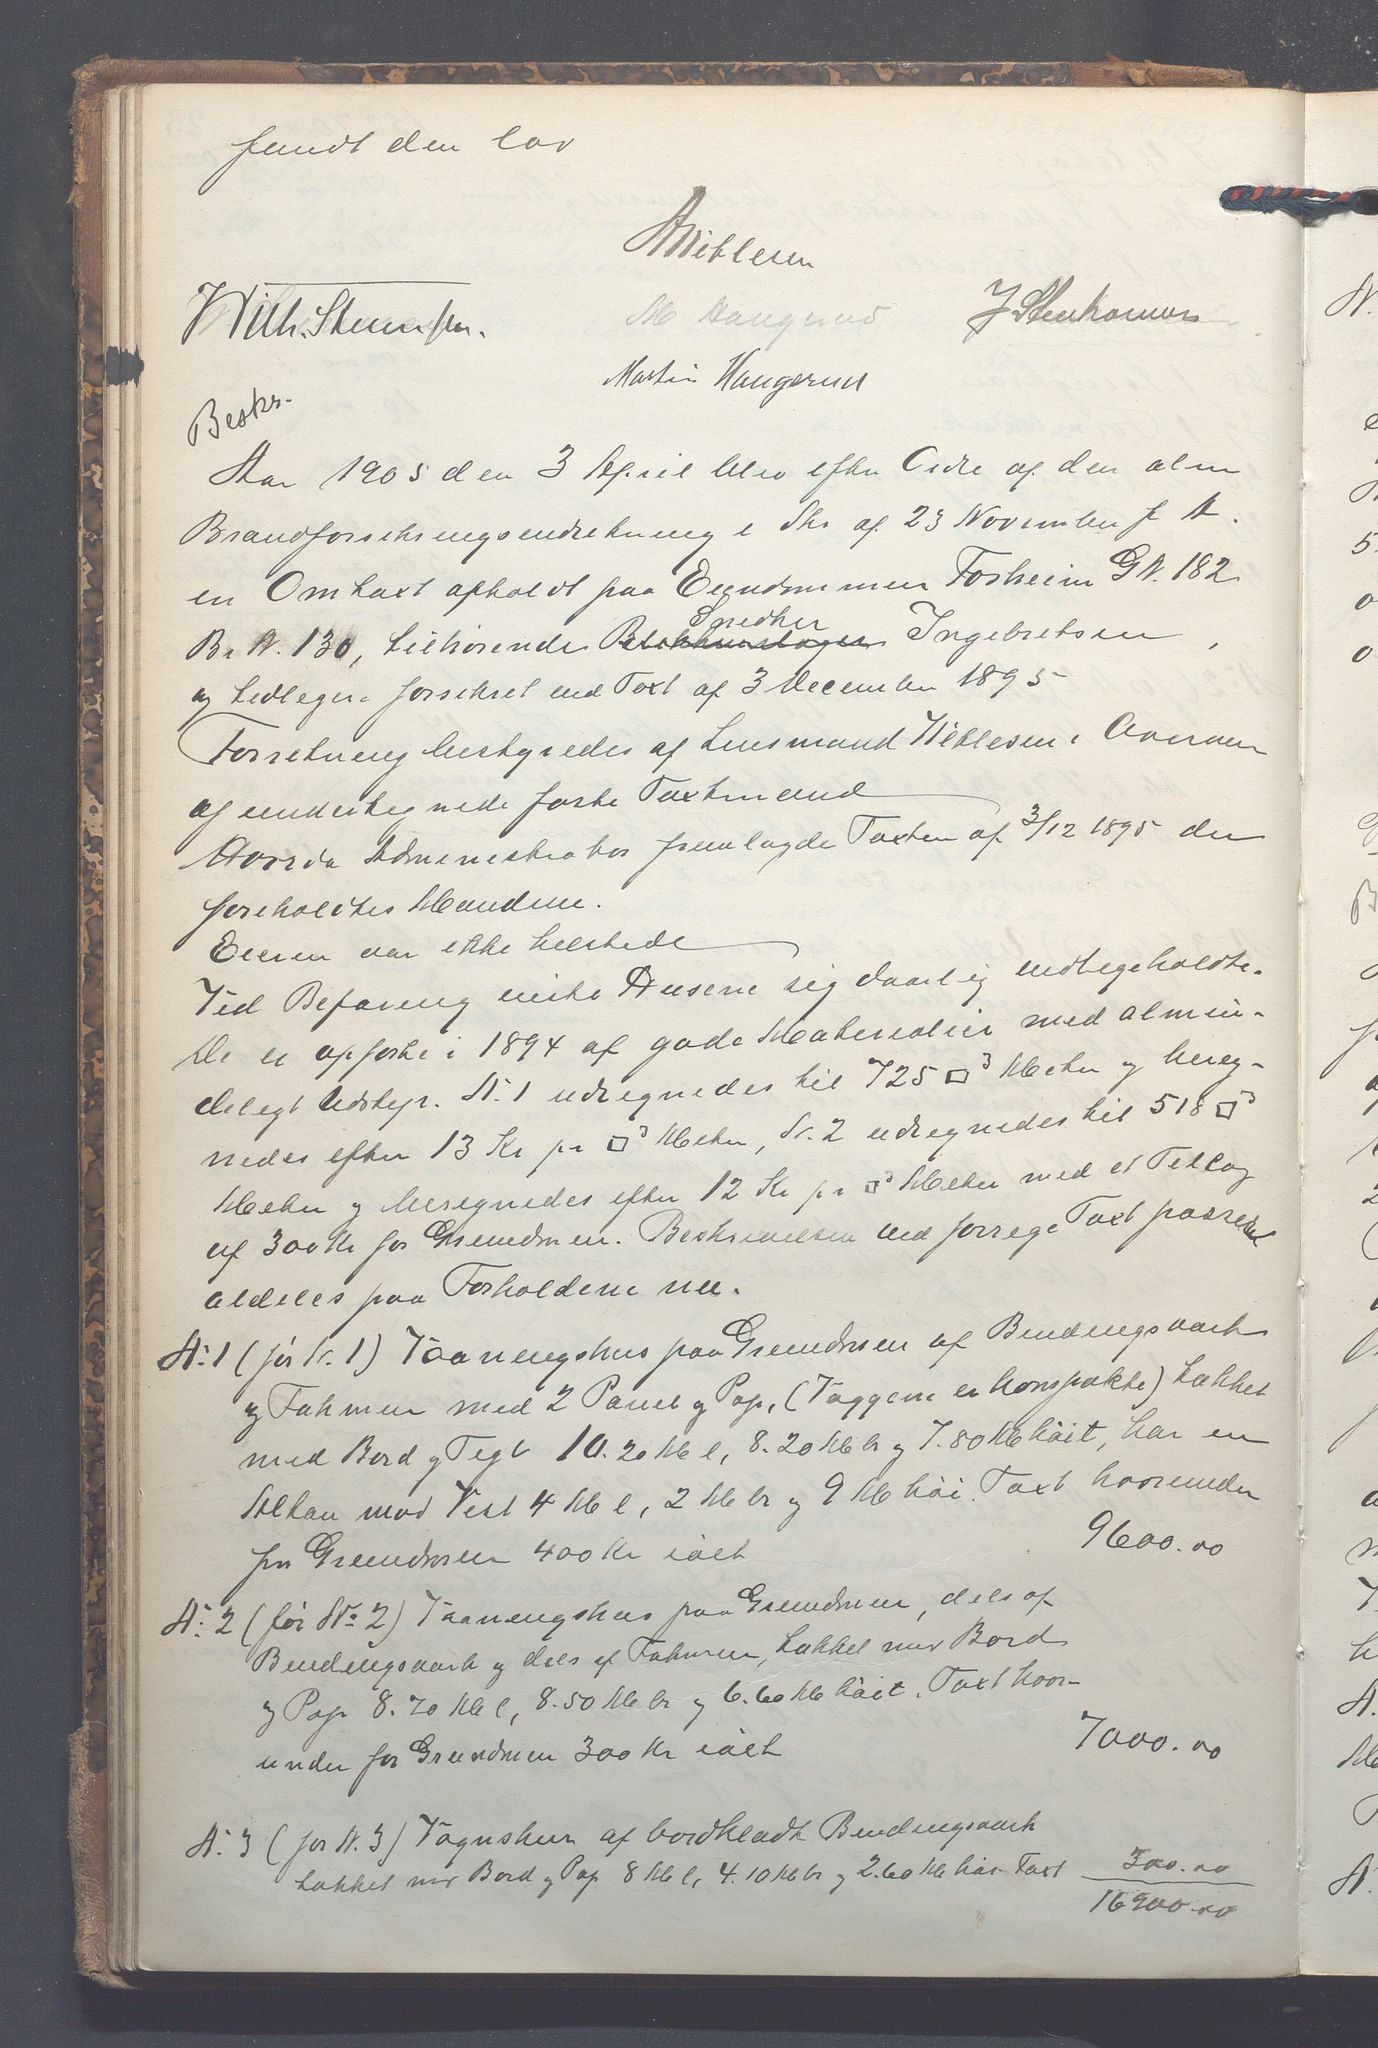 fandt den lav
AWiklesen
Wilh. Steensen.
M Haugerud
J Stenhammer
Martin Haugerud
Beskr.
Aar 1905 den 3 April blev efter Ordre af den alm
Brandforsikringsindretning i Skr af 23 November f A.
en Omtaxt afholdt paa Eiendommen Fosheim G N. 182
Br N. 130, tilhørende Snedker Ingebretsen,
og tidligere forsikret ved Taxt af 3 December 1895
Forretning bestyredes af Lensmand Wiklesen i Overvær
af undertegnede faste Taxtmænd
Hvorda Administrator fremlagde Taxten af 3/12 1895 der
foreholdtes Mændene.
Eieren var ikke tilstede
Ved Befaring viste Husene sig daarlig vedligeholdte.
De er opførte i 1894 af gode Materialier med almin-
deligt Udstyr. N. 1 udregnedes til 725 □3 Meter og bereg-
nedes efter 13 Kr pr □3 Meter, N. 2 udregnedes til 518 □3
Meter og beregnedes efter 12 Kr pr □3 Meter med et Tillæg
af 300 Kr for Grundmuren. Beskrivelsen ved forrige Taxt passede
aldeles paa Forholdene nu.
N. 1 (før N. 1) Vaaningshus paa Grundmur af Bindingsværk
og Tømmer med 2 Panel og Pap, (Væggene er kompakte) tækket
med Bord og Tegl 10.20 M l, 8.20 M br og 7.80 M høit, har en
Altan mod Vest 4 M l, 2 M br og 9 M høi. Taxt hvorunder
for Grundmuren 400 Kr ialt 9600.00
N. 2 (før No 2) Vaaningshus paa Grundmur, dels af
Bindingsværk og dels af Tømmer, tækket med Bord
og Pap 8.70 M l, 8.50 M br og 6.60 M høit. Taxt hvor-
under for Grundmuren 300 Kr ialt 7000.00
N. 3 (før N. 3) Vognskur af bordklædt Bindingsværk
tækket med Bord og Pap 8 M l, 4.10 M br og 2.60 M høi. Taxt 300.00
16900.00